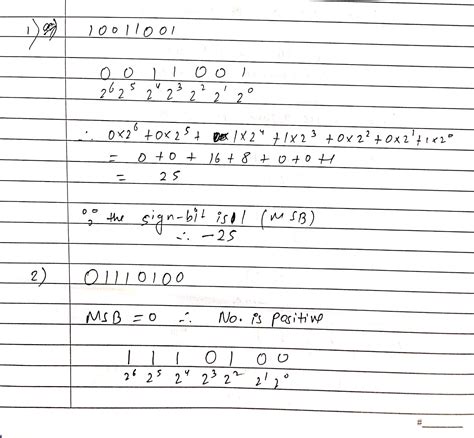 1) 10011001
0 0 1 1 0 0 1
2⁶ 2⁵ 2⁴ 2³ 2² 2¹ 2⁰
∴ 0×2⁶ + 0×2⁵ + 1×2⁴ + 1×2³ + 0×2² + 0×2¹ + 1×2⁰
= 0 + 0 + 16 + 8 + 0 + 0 + 1
= 25
∵ the sign-bit is 1 (MSB)
∴ -25
2) 01110100
MSB = 0 ∴ No. is positive
1 1 1 0 1 0 0
2⁶ 2⁵ 2⁴ 2³ 2² 2¹ 2⁰
#